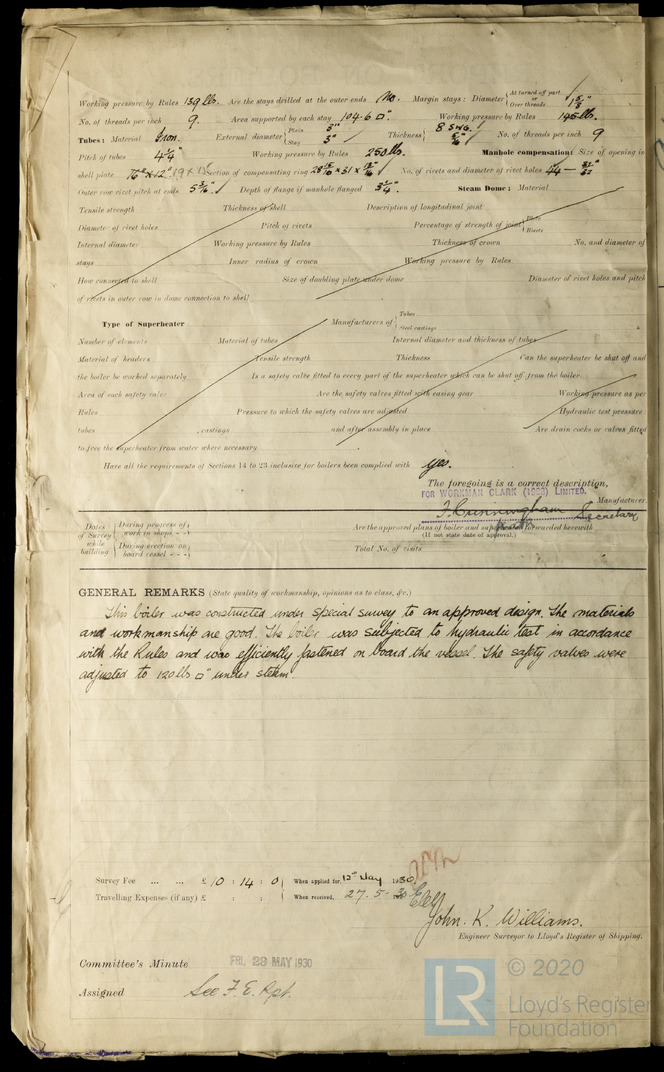 Working pressure by Rules 139 lbs. Are the stays drilled at the outer ends No. Margin stays: Diameter { At turned off part or Over threads 1 5/8"
No. of threads per inch 9. Area supported by each stay 104.6 □". Working pressure by Rules 145 lbs.
Tubes: Material Iron. External diameter { Plain 3" Stay 3" Thickness { 8 SWG. 5/16" No. of threads per inch 9
Pitch of tubes 4 1/4" Working pressure by Rules 250 lbs. Manhole compensation: Size of opening in
shell plate 16" x 12" Section of compensating ring No. of rivets and diameter of rivet holes 44 —
Outer row rivet pitch at ends Depth of flange if manhole flanged 3 1/4". Steam Dome: Material
Tensile strength Thickness of shell Description of longitudinal joint
Diameter of rivet holes Pitch of rivets Percentage of strength of joint { Plate Rivets
Internal diameter Working pressure by Rules Thickness of crown No. and diameter of
stays Inner radius of crown Working pressure by Rules
How connected to shell Size of doubling plate under dome Diameter of rivet holes and pitch
of rivets in outer row in dome connection to shell
Type of Superheater Manufacturers of { Tubes Steel castings
Number of elements Material of tubes Internal diameter and thickness of tubes
Material of headers Tensile strength Thickness Can the superheater be shut off and
the boiler be worked separately Is a safety valve fitted to every part of the superheater which can be shut off from the boiler
Area of each safety valve Are the safety valves fitted with easing gear Working pressure as per
Rules Pressure to which the safety valves are adjusted Hydraulic test pressure:
tubes , castings and after assembly in place Are drain cocks or valves fitted
to free the superheater from water where necessary
Have all the requirements of Sections 14 to 23 inclusive for boilers been complied with yes.
The foregoing is a correct description,
FOR WORKMAN CLARK (1928) LIMITED.
F. Cunningham Secretary Manufacturer.
Dates of Survey while building { During progress of work in shops - - } Are the approved plans of boiler and superheater forwarded herewith
(If not state date of approval.)
{ During erection on board vessel - - - } Total No. of visits
GENERAL REMARKS (State quality of workmanship, opinions as to class, &c.)
This boiler was constructed under special survey to an approved design. The materials
and workmanship are good. The boiler was subjected to hydraulic test in accordance
with the Rules and was efficiently fastened on board the vessel. The safety valves were
adjusted to 120 lbs □" under steam.
Survey Fee ... ... £ 10 : 14 : 0 When applied for, 12th May 1930
Travelling Expenses (if any) £ : : When received, 27.5.30
John. K. Williams.
Engineer Surveyor to Lloyd's Register of Shipping.
Committee's Minute FRI. 23 MAY 1930
Assigned See F.E. Rpt.
LR © 2020
Lloyd's Register
Foundation